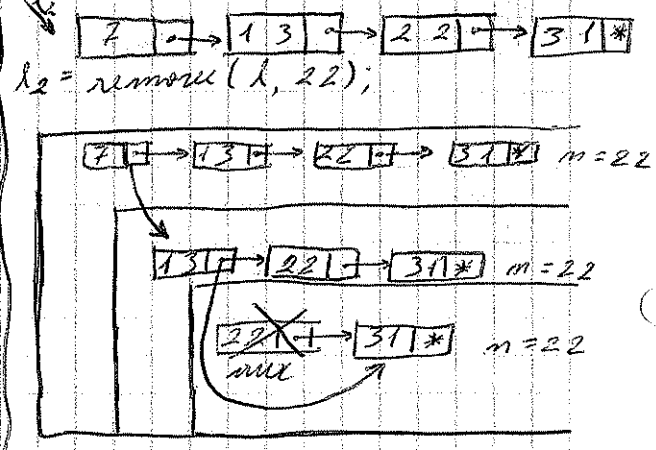 7 13 22 31 *
l2 = remove(l, 22);
7 13 22 31 * n = 22
13 22 31 * n = 22
22 31 * n = 22